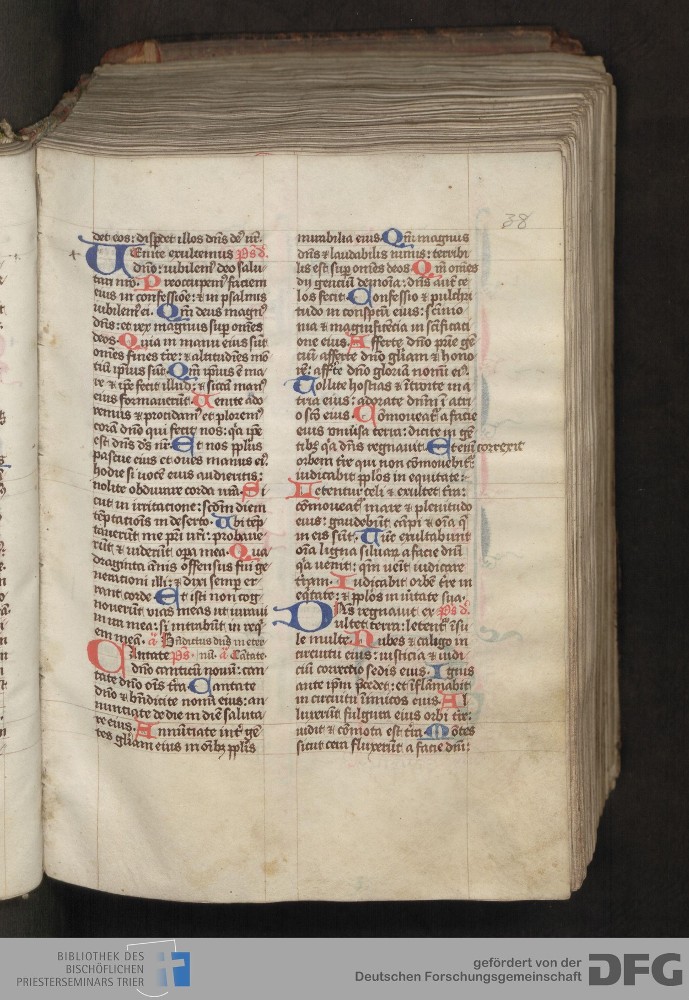 38
det eos: disp̄det illos dn̄s de᷒ nr̄.
Uenite exultemus ps d.
dn̄o: iubilem᷒ deo salu
tari nr̄o. Preoccupem᷒ faciem
eius in confessiōe: ⁊ in psalmis
iubilem᷒ ei. Qm̄ deus magn᷒
dn̄s: et rex magnus sup om̄es
deos. Quia in manu eius sūt
om̄es fines tr̄e: ⁊ altitudīes mō
tiū ipius sūt. Qm̄ ipius ē ma
re ⁊ ip̄e fecit illud: ⁊ siccā man᷒
eius formauerūt. Uenite ado
remus ⁊ procidam᷒ et plorem᷒
corā dn̄o qui fecit nos: q̄a ip̄e
est dn̄s ds̄ nr̄. Et nos pplus
pascue eius et oues manus ei᷒.
hodie si uocē eius audieritis:
nolite obdurare corda vr̄a. Si
cut in irritacione: scd̄m diem
tēptatiōis in deserto. Ubi tēp
tauerūt me pr̄i vr̄i: probaue
rūt ⁊ uiderūt oꝑa mea. Qua
draginta annis offensus fui ge
nerationi illi: ⁊ dixi semper er
rant corde. Et isti non cog
nouerūt vias meas ut iuraui
in ira mea: si intrabūt in req̄
em meā. a᷒ Bn̄dictus dn̄s in eter
Cantate ps. nū. a᷒ Cātate.
dn̄o canticū nouū: can
tate dn̄o oīs tr̄a. Cantate
dn̄o ⁊ bn̄dicite nomī eius: an
nunciate de die in diē saluta
re eius. Annūtiate int̄ ge
tes gl̄iam eius in oīb᷒ pplis
mirabilia eius. Qm̄ magnus
dn̄s ⁊ laudabilis nimis: terribi
lis est sup om̄es deos. Qm̄ om̄es
dij genciū demoīa: dn̄s aut̄ ce
los fecit. Confessio ⁊ pulchri
tudo in conspc̄u eius: sc̄imo
nia ⁊ magnificēcia in sc̄ificati
one eius. Afferte dn̄o pr̄ie ge
ciū afferte dn̄o gl̄iam ⁊ hono
rē: aff̄te dn̄o gloriā nomī ei᷒.
Tollite hostias ⁊ ītroite in a
tria eius: adorate dn̄m ī atri
o sc̄o eius. Cōmoueat᷒ a facie
eius vniūsa terra: dicite in gē
tib᷒ q̄a dn̄s regnauit. Eteni correxit
orbem tr̄e qui non cōmouebit᷒:
iudicabit pplos in equitate:
Letentur celi ⁊ exultet tr̄a:
cōmoueat᷒ mare ⁊ plenitudo
eius: gaudebūt cāpi ⁊ oīa q̄
in eis sūt. Tūc exultabunt
oīa ligna siluar᷒ a facie dn̄i
q̄a venit: qm̄ venit iudicare
terrā. Iudicabit orbē tr̄e in
eq̄tate: ⁊ pplos in ūitate sua.
Dn̄s regnauit ex ps d.
ultet terra: letent᷒ īsu
le multe. Nubes ⁊ caligo in
circuitu eius: iusticia ⁊ iudi
ciū correctio sedis eius. Ignis
ante ip̄m p̄cedet: et īflāmabit
in circuitu īimicos eius. Al
luxerūt fulgura eius orbi tr̄e:
uidit ⁊ cōmota est tr̄a. Mōtes
sicut cera fluxerūt a facie dn̄i:
BIBLIOTHEK DES
BISCHÖFLICHEN
PRIESTERSEMINARS TRIER
gefördert von der
Deutschen Forschungsgemeinschaft
DFG